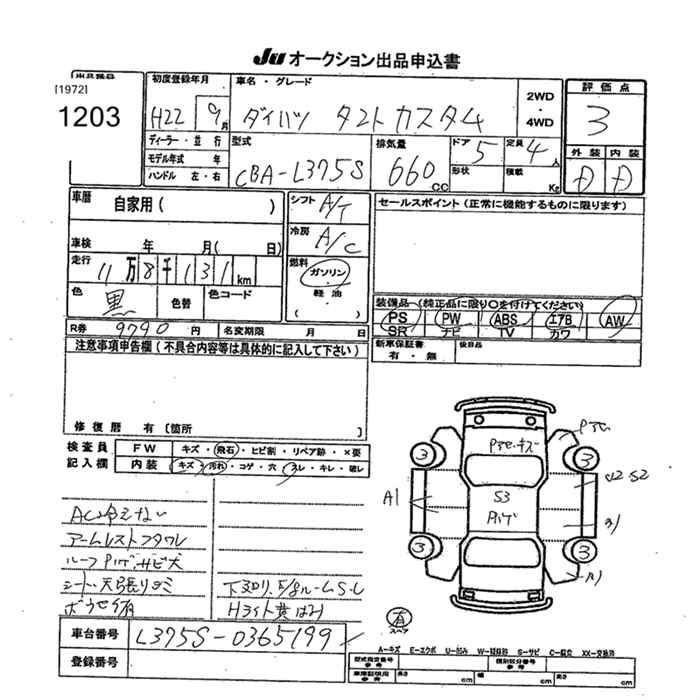 JU オークション出品申込書
出品番号 初度登録年月 車名・グレード 評価点
[1972]
1203 H22 9月 ダイハツ タント カスタム 2WD・4WD 3
ディーラー・並行 型式 排気量 ドア 5 定員 4人
モデル年式 年 CBA-L375S 660CC 形状 積載 Kg 外装 内装
ハンドル 左・右 D D
車歴 自家用( ) シフト A/T セールスポイント(正常に機能するものに限ります)
車検 年 月( 日) 冷房 A/C
走行 11万8千131km 燃料 ガソリン・軽油 ( )
色 黒 色替 色コード 装備品(純正品に限り○を付けてください)
PS PW ABS エアB AW
R券 9790円 名変期限 月 日 SR ナビ TV カワ
注意事項申告欄(不具合内容等は具体的に記入して下さい) 新車保証書 有・無 後日品
修復歴 有〔箇所
検査員記入欄 FW キズ・飛石・ヒビ割・リペア跡・×要
内装 キズ・汚れ・コゲ・穴・スレ・キレ・破レ
ACは冷えない
アームレストフタワレ
ルーフPハゲサビ大
シート、天張りシミ
ボウセイ有
下廻り、5/8ルームS・U
Hライト黄ばみ
3 3 3 3
A1
S3
Pハゲ
U2・S2
有
スペア
車台番号 L375S-0365199
A-キズ E-エクボ U-凹み W-補修跡 S-サビ C-腐立 XX-交換済
登録番号 型式指定番号 参考 類別区分番号 参考
車庫証明用 参考 長さ cm 幅 cm 高さ cm